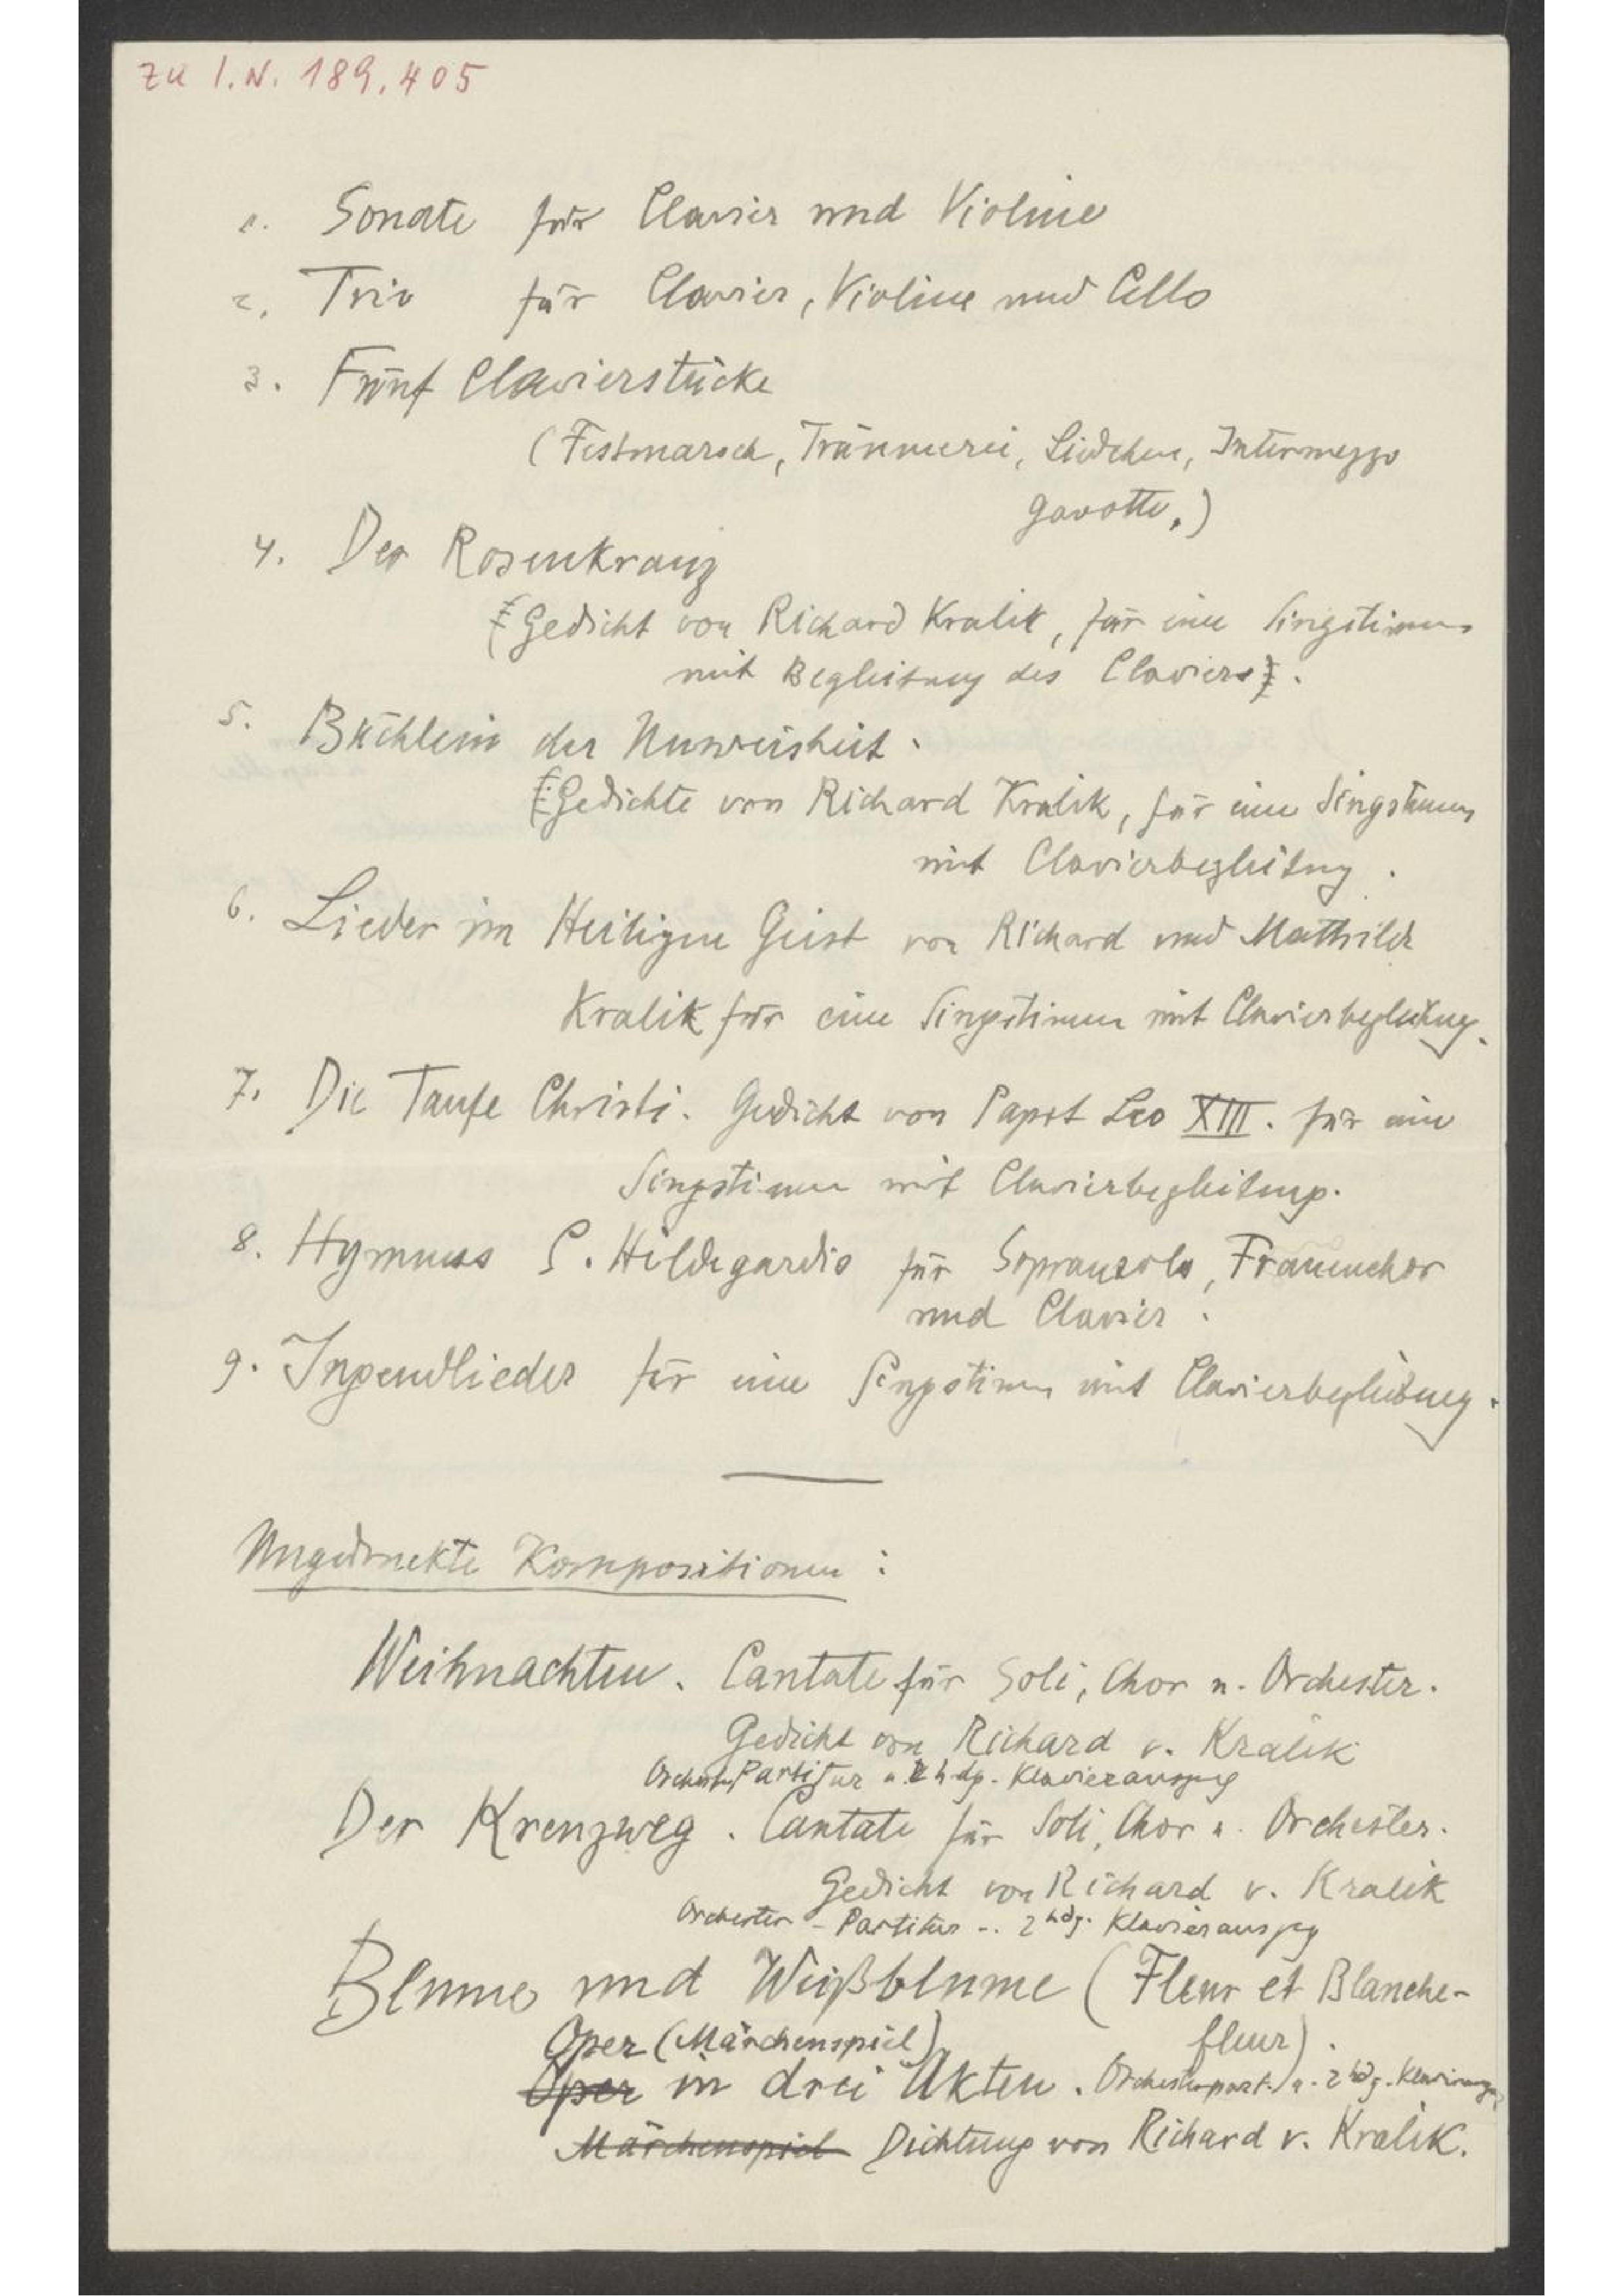 zu I.N. 189.405
1. Sonate für Clavier und Violine
2. Trio für Clavier, Violine und Cello
3. Fünf Clavierstücke
(Festmarsch, Träumerei, Liedchen, Intermezzo
Gavotte.)
4. Der Rosenkranz
(Gedicht von Richard Kralik, für eine Singstimme
mit Begleitung des Claviers).
5. Büchlein der Unweisheit.
(Gedichte von Richard Kralik, für eine Singstimme
mit Clavierbegleitung.
6. Lieder im Heiligen Geist von Richard und Mathilde
Kralik für eine Singstimme mit Clavierbegleitung.
7. Die Taufe Christi. Gedicht von Papst Leo XIII. für eine
Singstimme mit Clavierbegleitung.
8. Hymnus S. Hildegardis für Sopransolo, Frauenchor
und Clavier.
9. Jugendlieder für eine Singstimme mit Clavierbegleitung.
Ungedruckte Kompositionen:
Weihnachten. Cantate für Soli, Chor u. Orchester.
Gedicht von Richard v. Kralik
Orchester Partitur u. 2 hdg. Klavierauszug
Der Kreuzweg. Cantate für Soli, Chor u. Orchester.
Gedicht von Richard v. Kralik
Orchester - Partitur -. 2 hdg. Klavierauszug
Blume und Weißblume (Fleur et Blanche-
fleur).
Oper (Märchenspiel)
Oper in drei Akten. Orchesterpart. u. 2 hdg. Klavierauszug
Märchenspiel Dichtung von Richard v. Kralik.